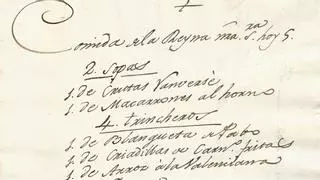 Comida de la Reyna nra. Sra. hoy 5.
2. sopas
1. de Crutas
1. de Macarrones al horno
4. trincheros
1. de Blanqueta de Pabo
1. de Criadillas de Carn.º fritas
1. de Arroz à la Valenciana